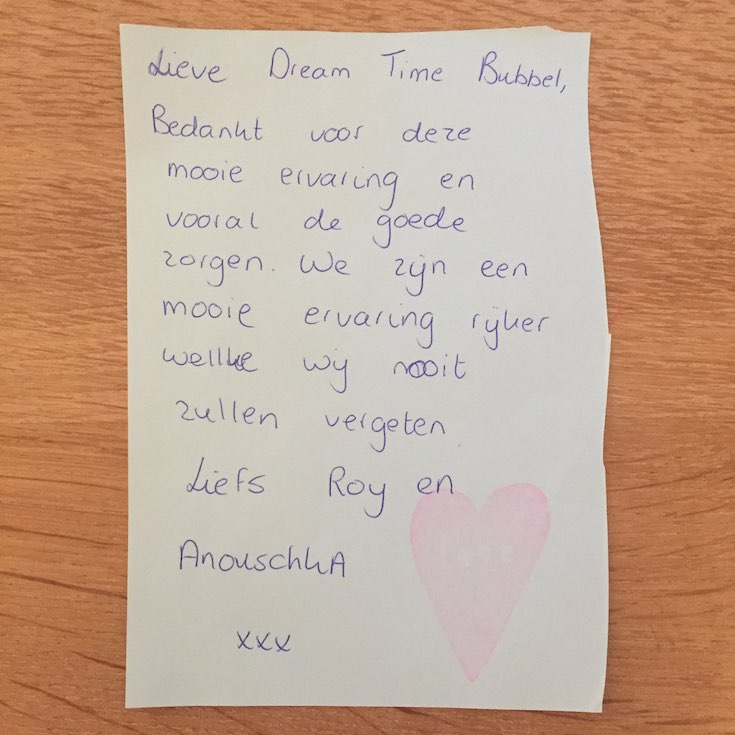 Lieve Dream Time Bubbel,
Bedankt voor deze
mooie ervaring en
vooral de goede
zorgen. We zijn een
mooie ervaring rijker
welke wij nooit
zullen vergeten
Liefs Roy en
AnouschkA
xxx